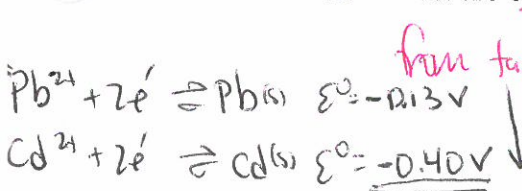 from ta
Pb²⁺ + 2e⁻ ⇌ Pb(s) ℰ⁰ = -0.13V
Cd²⁺ + 2e⁻ ⇌ Cd(s) ℰ⁰ = -0.40V